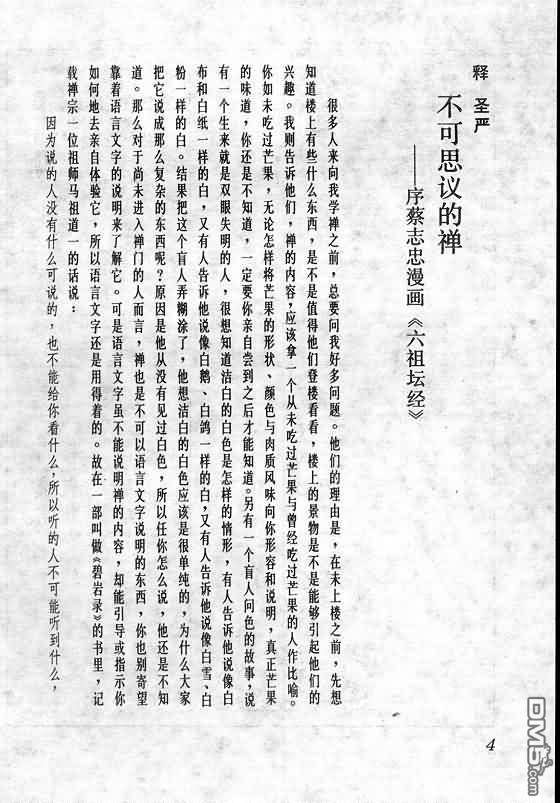 释 圣严
不可思议的禅
——序蔡志忠漫画《六祖坛经》
很多人来向我学禅之前，总要问我好多问题。他们的理由是，在未上楼之前，先想
知道楼上有些什么东西，是不是值得他们登楼看看，楼上的景物是不是能够引起他们的
兴趣。我则告诉他们，禅的内容，应该拿一个从未吃过芒果与曾经吃过芒果的人作比喻。
你如未吃过芒果，无论怎样将芒果的形状、颜色与肉质风味向你形容和说明，真正芒果
的味道，你还是不知道，一定要你亲自尝到之后才能知道。另有一个盲人问色的故事，说
有一个生来就是双眼失明的人，很想知道洁白的白色是怎样的情形，有人告诉他说像白
布和白纸一样的白，又有人告诉他说像白鹅、白鸽一样的白，又有人告诉他说像白雪、白
粉一样的白。结果把这个盲人弄糊涂了，他想洁白的白色应该是很单纯的，为什么大家
把它说成那么复杂的东西呢？原因是他从没有见过白色，所以任你怎么说，他还是不知
道。那么对于尚未进入禅门的人而言，禅也是不可以语言文字说明的东西，你也别寄望
靠着语言文字的说明来了解它。可是语言文字虽不能说明禅的内容，却能引导或指示你
如何地去亲自体验它，所以语言文字还是用得着的。故在一部叫做《碧岩录》的书里，记
载禅宗一位祖师马祖道一的话说：
因为说的人没有什么可说的，也不能给你看什么，所以听的人不可能听到什么，
4
DM5.com